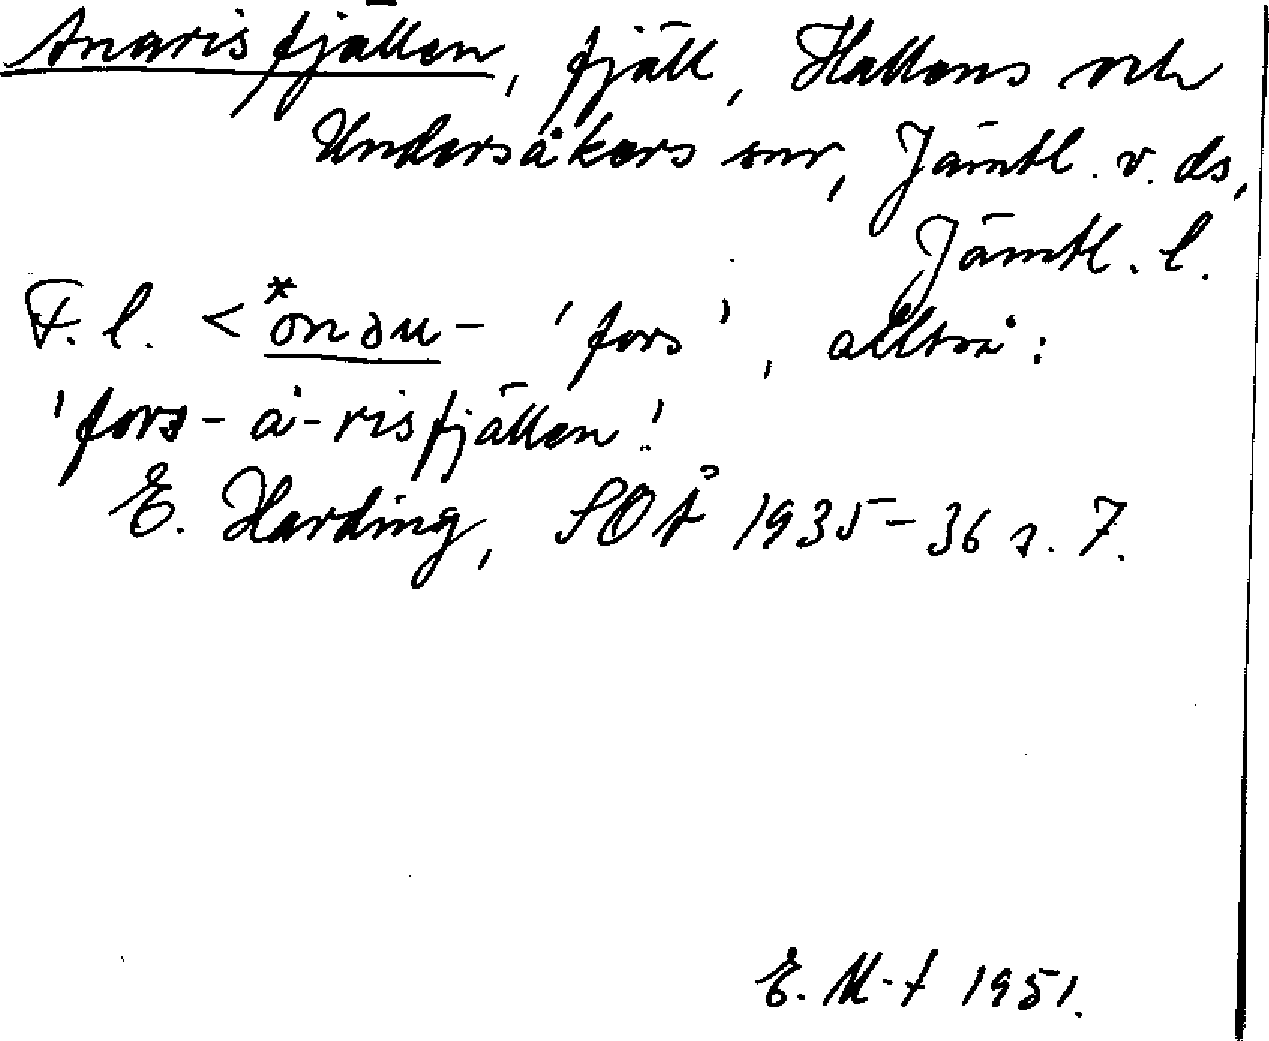 Anarisfjällen, fjäll, Hallens och
Undersåkers snr, Jämtl. v. ds,
Jämtl. l.
F. l. < *onðu- 'fors', alltså:
'fors-å-risfjällen'.
E. Harding, SOÅ 1935-36 s. 7.
E. M-t 1951.